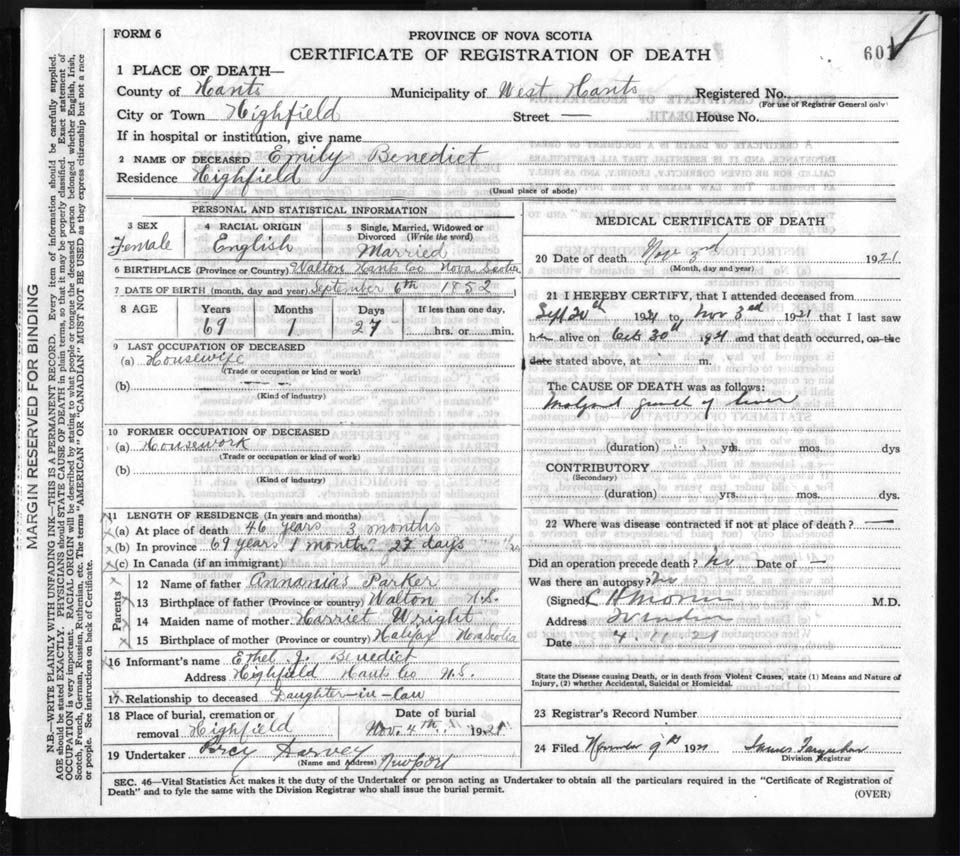 FORM 6
PROVINCE OF NOVA SCOTIA
CERTIFICATE OF REGISTRATION OF DEATH
601
1 PLACE OF DEATH—
County of Hants Municipality of West Hants Registered No.
(For use of Registrar General only)
City or Town Highfield Street — House No.
If in hospital or institution, give name
2 NAME OF DECEASED Emily Benedict
Residence Highfield
(Usual place of abode)
PERSONAL AND STATISTICAL INFORMATION
3 SEX 4 RACIAL ORIGIN 5 Single, Married, Widowed or Divorced (Write the word)
Female English Married
6 BIRTHPLACE (Province or Country) Walton Hants Co Nova Scotia
7 DATE OF BIRTH (month, day and year) September 6th 1852
8 AGE Years Months Days If less than one day,
69 1 27 hrs. or min.
9 LAST OCCUPATION OF DECEASED
(a) Housewife
(Trade or occupation or kind of work)
(b) — —
(Kind of industry)
10 FORMER OCCUPATION OF DECEASED
(a) Housework
(Trade or occupation or kind of work)
(b)
(Kind of industry)
11 LENGTH OF RESIDENCE (In years and months)
(a) At place of death 46 years 3 months
(b) In province 69 years 1 month 27 days
(c) In Canada (if an immigrant)
Parents
12 Name of father Annanias Parker
13 Birthplace of father (Province or country) Walton N.S.
14 Maiden name of mother Harriet Wright
15 Birthplace of mother (Province or country) Halifax Nova Scotia
16 Informant's name Ethel J. Benedict
Address Highfield Hants Co N.S.
17 Relationship to deceased Daughter-in-law
18 Place of burial, cremation or removal Highfield Date of burial Nov. 4th 1921
19 Undertaker Percy Harvey Newport
(Name and address)
MEDICAL CERTIFICATE OF DEATH
20 Date of death Nov 3rd 1921
(Month, day and year)
21 I HEREBY CERTIFY, that I attended deceased from
Sept 20th 1921 to Nov 3rd 1921 that I last saw
her alive on Oct 30th 1921 and that death occurred, on the
date stated above, at m.
The CAUSE OF DEATH was as follows:
growth of liver
(duration) yrs. mos. dys
CONTRIBUTORY
(Secondary)
(duration) yrs. mos. dys.
22 Where was disease contracted if not at place of death? —
Did an operation precede death? No Date of —
Was there an autopsy? No
(Signed) M.D.
Address Windsor
Date 4 11 21
State the Disease causing Death, or in death from Violent Causes, state (1) Means and Nature of
Injury, (2) whether Accidental, Suicidal or Homicidal.
23 Registrar's Record Number
24 Filed November 9th 1921 James Farquhar
Division Registrar
SEC. 46—Vital Statistics Act makes it the duty of the Undertaker or person acting as Undertaker to obtain all the particulars required in the "Certificate of Registration of
Death" and to fyle the same with the Division Registrar who shall issue the burial permit.
(OVER)
MARGIN RESERVED FOR BINDING
N.B.—WRITE PLAINLY WITH UNFADING INK—THIS IS A PERMANENT RECORD. Every item of information should be carefully supplied.
AGE should be stated EXACTLY. PHYSICIANS should STATE CAUSE OF DEATH in plain terms, so that it may be properly classified. Exact statement of
OCCUPATION is very important. RACIAL ORIGIN will be described by stating to what people or tongue the deceased person belonged whether English, Irish,
Scotch, French, German, Russian, Ruthenian, etc. The terms "AMERICAN" OR "CANADIAN" MUST NOT BE USED as they express citizenship but not a race
or people. See instructions on back of Certificate.